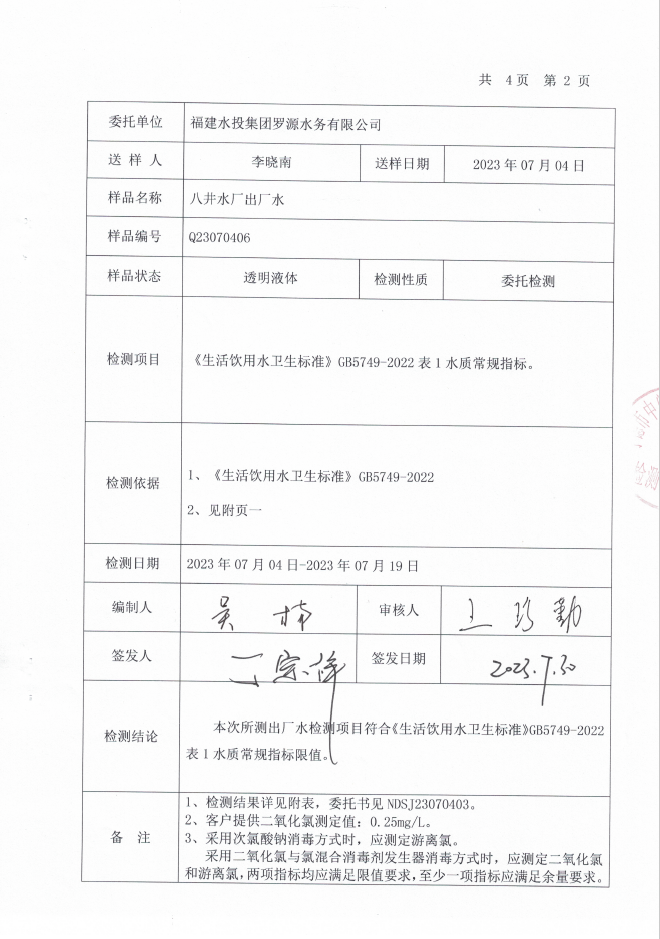 共 4页 第 2 页
委托单位 福建水投集团罗源水务有限公司
送 样 人 李晓南 送样日期 2023 年 07 月 04 日
样品名称 八井水厂出厂水
样品编号 Q23070406
样品状态 透明液体 检测性质 委托检测
检测项目 《生活饮用水卫生标准》GB5749-2022 表 1 水质常规指标。
检测依据 1、《生活饮用水卫生标准》GB5749-2022
2、见附页一
检测日期 2023 年 07 月 04 日-2023 年 07 月 19 日
编制人 吴 楠 审核人 王 珍 勤
签发人 丁宗祥 签发日期 2023.7.30
检测结论 本次所测出厂水检测项目符合《生活饮用水卫生标准》GB5749-2022
表 1 水质常规指标限值。
备 注 1、检测结果详见附表，委托书见 NDSJ23070403。
2、客户提供二氧化氯测定值：0.25mg/L。
3、采用次氯酸钠消毒方式时，应测定游离氯。
采用二氧化氯与氯混合消毒剂发生器消毒方式时，应测定二氧化氯
和游离氯，两项指标均应满足限值要求，至少一项指标应满足余量要求。